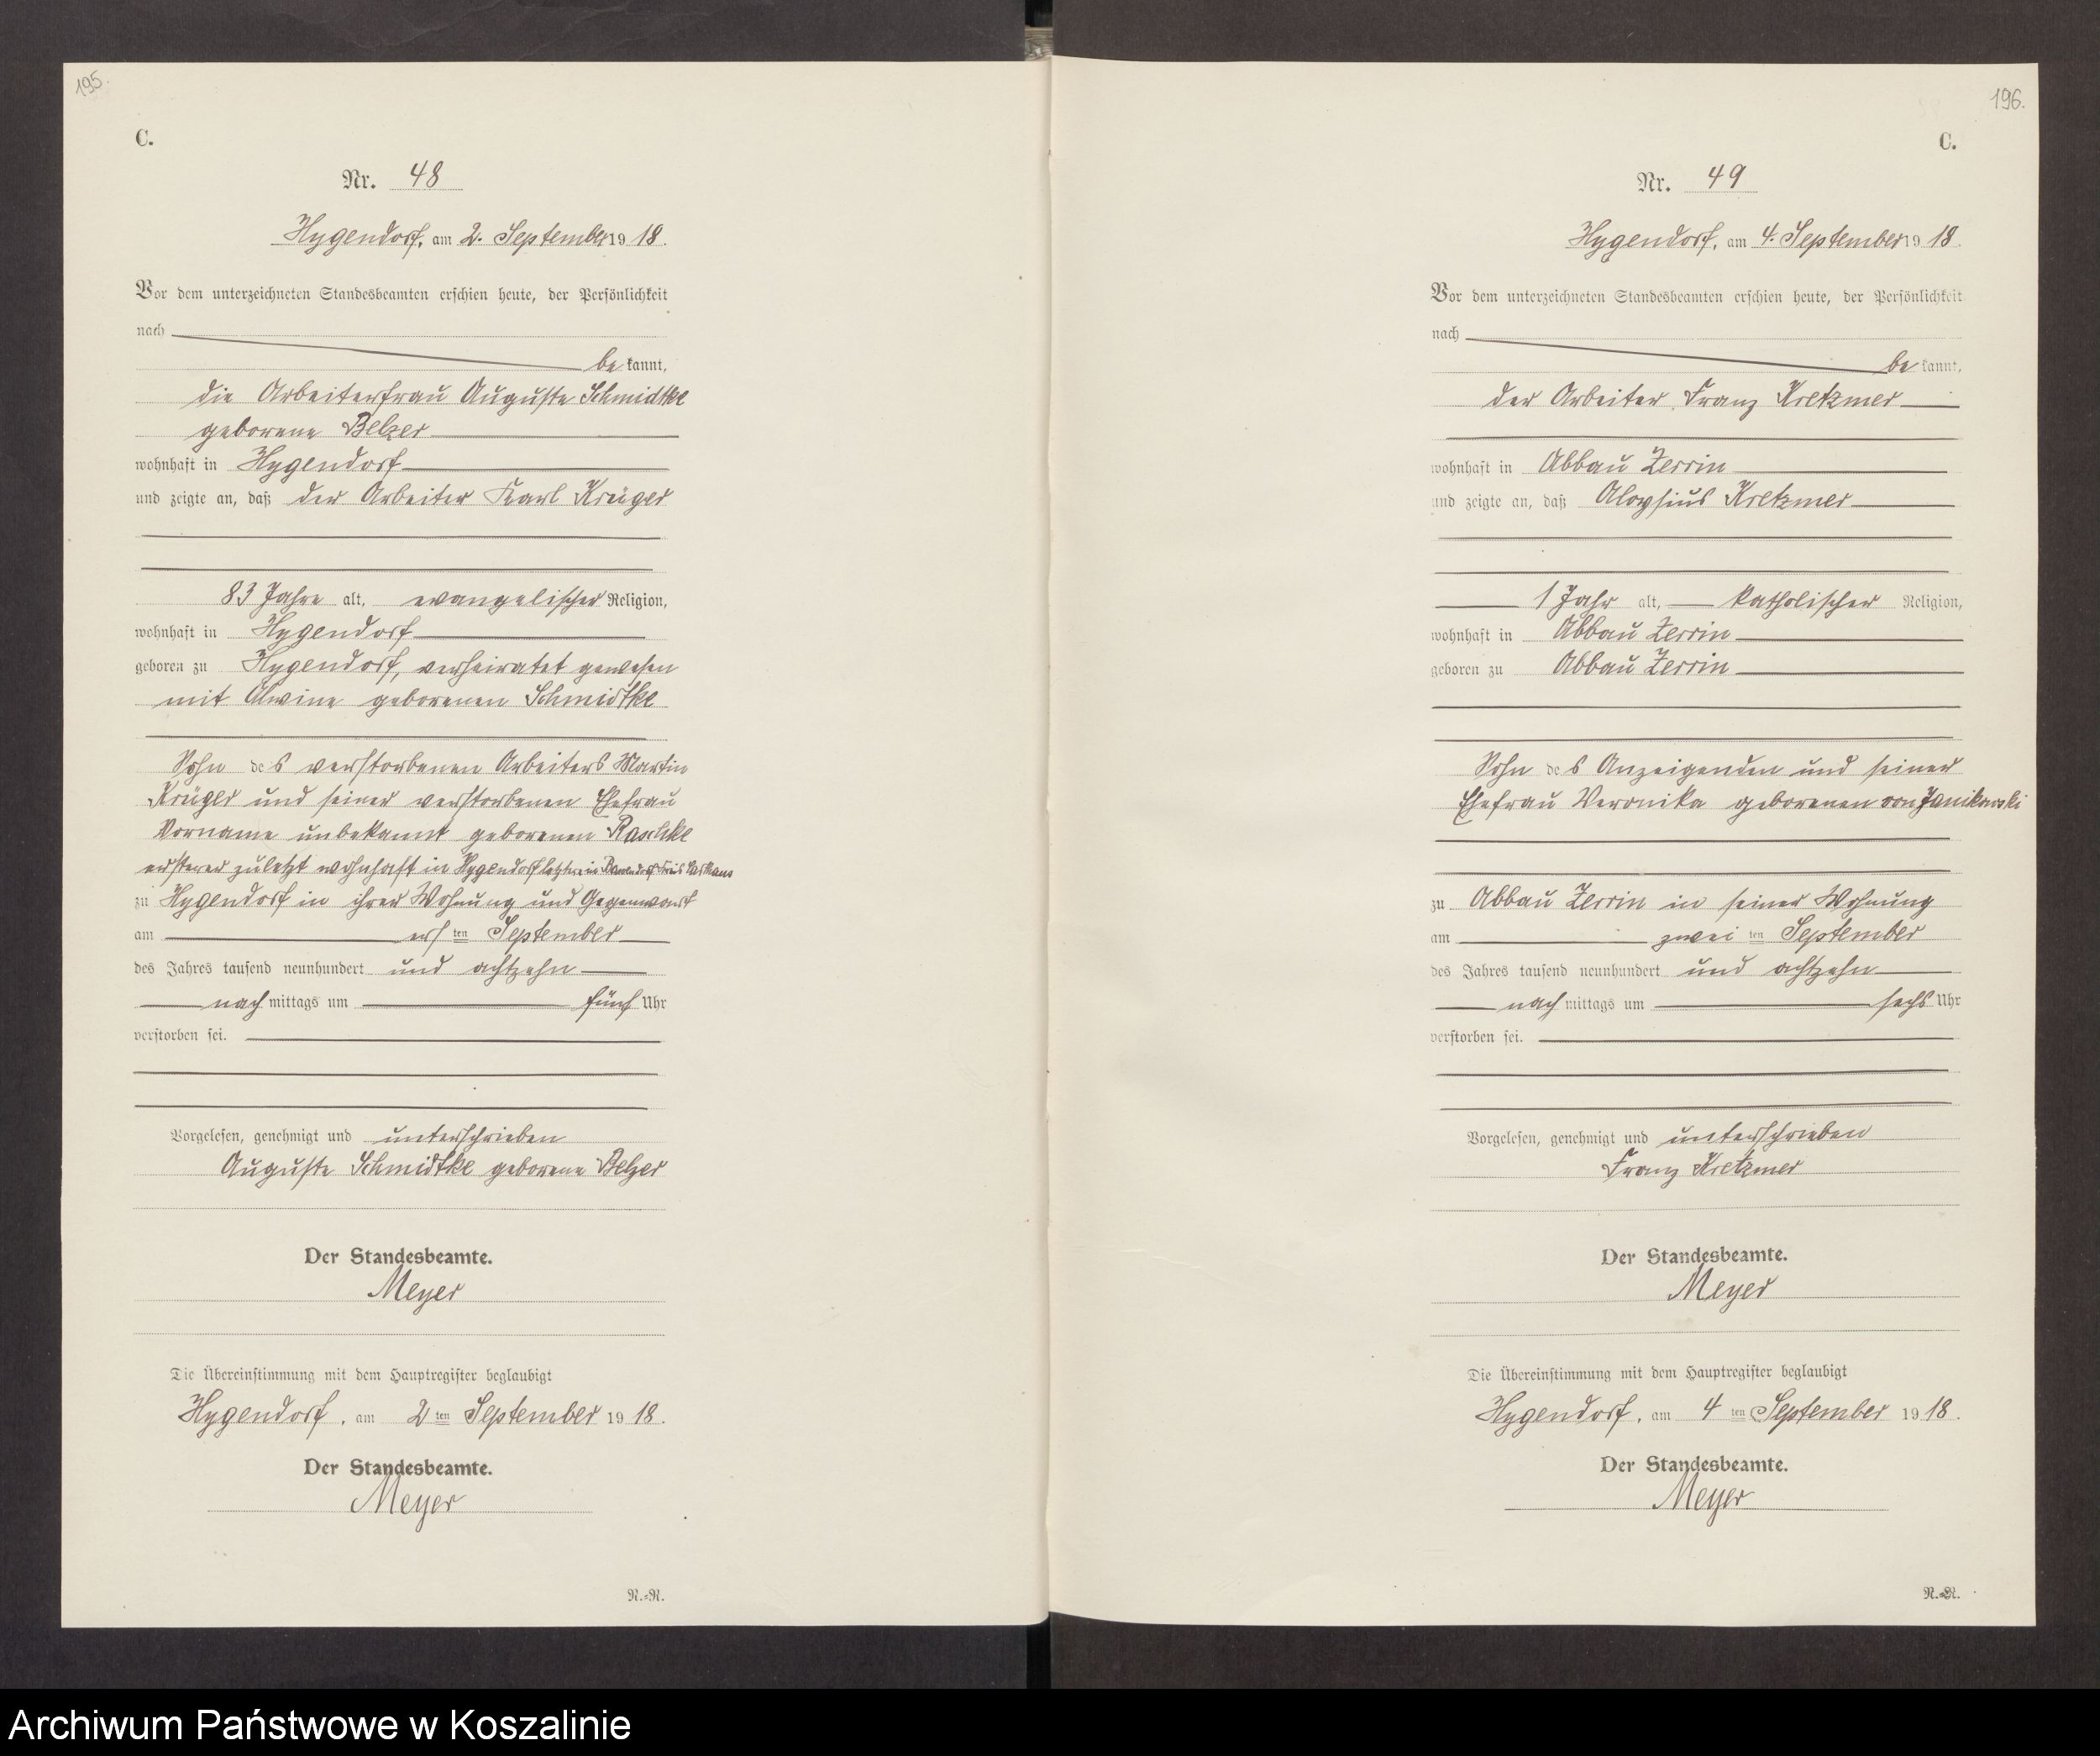 195.
C.
Nr. 48
Hygendorf, am 2. September 1918.
Vor dem unterzeichneten Standesbeamten erschien heute, der Persönlichkeit
nach
be kannt,
die Arbeiterfrau Auguste Schmidtke
geborene Belzer
wohnhaft in Hygendorf
und zeigte an, daß der Arbeiter Karl Krüger
83 Jahre alt, evangelischer Religion,
wohnhaft in Hygendorf
geboren zu Hygendorf, verheiratet gewesen
mit Alwine geborenen Schmidtke
Sohn des verstorbenen Arbeiters Martin
Krüger und seiner verstorbenen Ehefrau
Vorname unbekannt geborenen Raschke
ersterer zuletzt wohnhaft in Hygendorf letztere in Kreis
zu Hygendorf in ihrer Wohnung und Gegenwart
am ersten September
des Jahres tausend neunhundert und achtzehn
nachmittags um fünf Uhr
verstorben sei.
Vorgelesen, genehmigt und unterschrieben
Auguste Schmidtke geborene Belzer
Der Standesbeamte.
Meyer
Die Übereinstimmung mit dem Hauptregister beglaubigt
Hygendorf, am 2ten September 1918.
Der Standesbeamte.
Meyer
R.=R.
196.
C.
Nr. 49
Hygendorf, am 4. September 1918.
Vor dem unterzeichneten Standesbeamten erschien heute, der Persönlichkeit
nach
be kannt,
der Arbeiter Franz Kretzmer
wohnhaft in Abbau Zerrin
und zeigte an, daß Aloysius Kretzmer
1 Jahr alt, katholischer Religion,
wohnhaft in Abbau Zerrin
geboren zu Abbau Zerrin
Sohn des Anzeigenden und seiner
Ehefrau Veronika geborenen von Janikowski
zu Abbau Zerrin in seiner Wohnung
am zweiten September
des Jahres tausend neunhundert und achtzehn
nachmittags um sechs Uhr
verstorben sei.
Vorgelesen, genehmigt und unterschrieben
Franz Kretzmer
Der Standesbeamte.
Meyer
Die Übereinstimmung mit dem Hauptregister beglaubigt
Hygendorf, am 4ten September 1918.
Der Standesbeamte.
Meyer
R.=R.
Archiwum Państwowe w Koszalinie